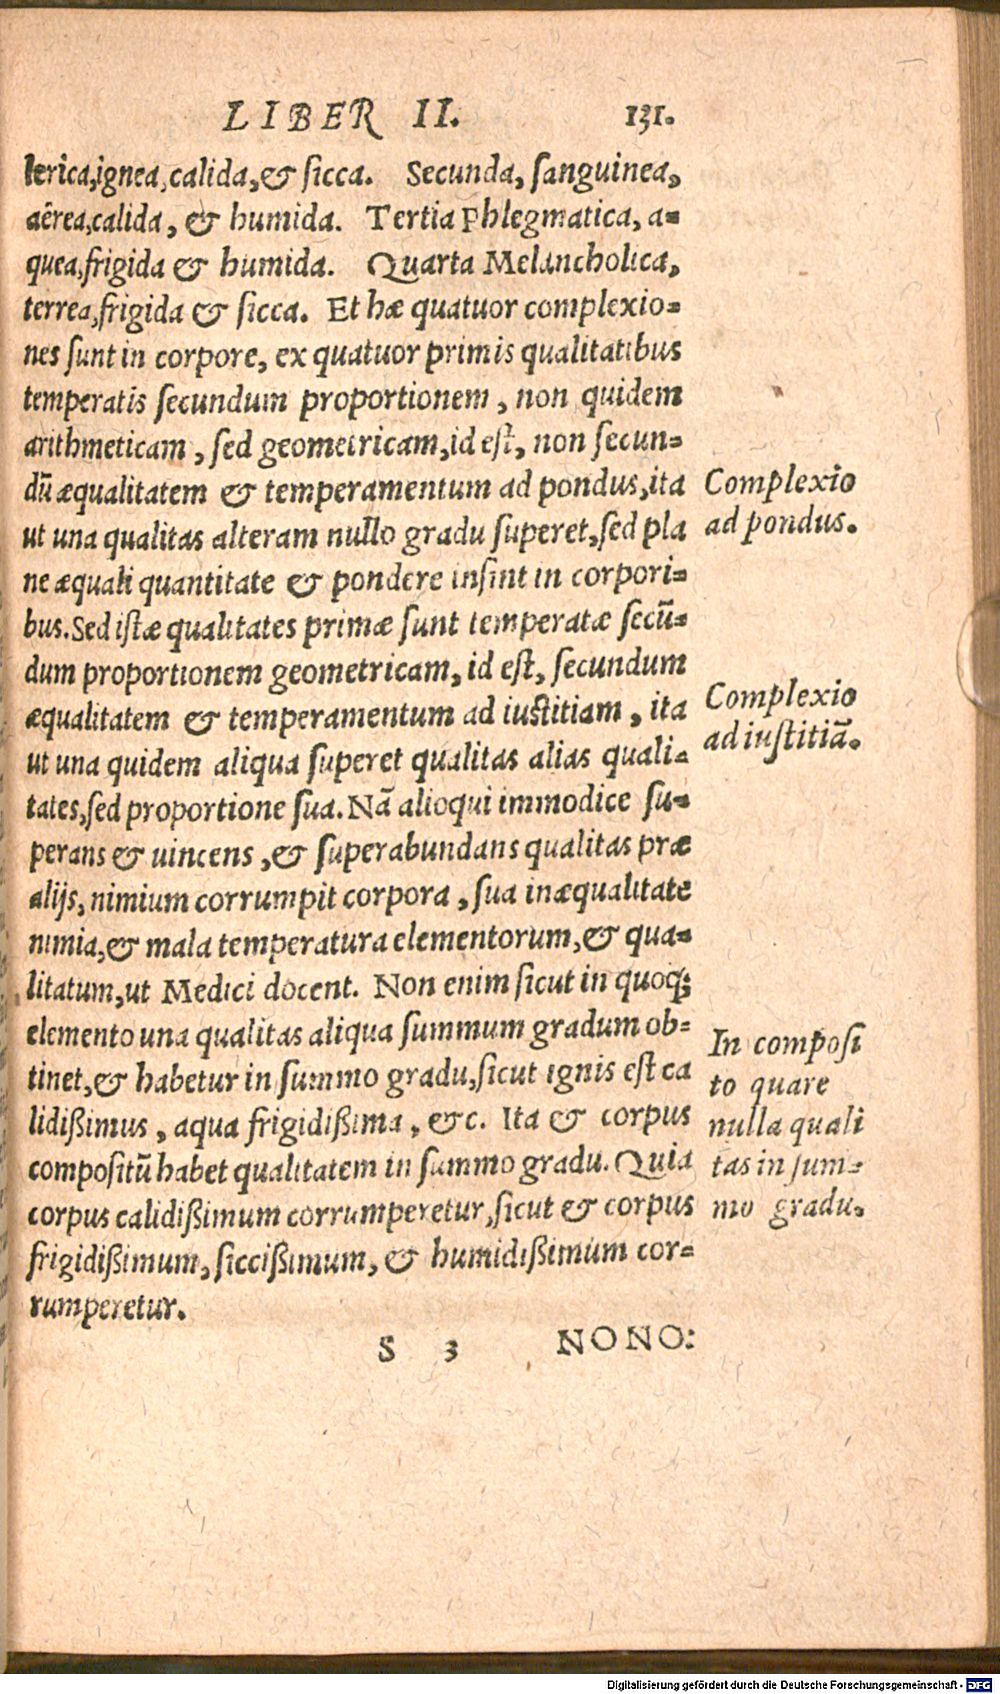 LIBER II. 131.
lerica,ignea,calida,& ſicca. Secunda, ſanguinea,
aërea,calida, & humida. Tertia Phlegmatica, a-
quea,frigida & humida. Quarta Melancholica,
terrea,frigida & ſicca. Et hæ quatuor complexio-
nes ſunt in corpore, ex quatuor primis qualitatibus
temperatis ſecundum proportionem, non quidem
arithmeticam, ſed geometricam,id eſt, non ſecun-
dũ æqualitatem & temperamentum ad pondus,ita
ut una qualitas alteram nullo gradu ſuperet,ſed pla
ne æquali quantitate & pondere inſint in corpori-
bus.Sed iſtæ qualitates primæ ſunt temperatæ ſecũ-
dum proportionem geometricam, id eſt, ſecundum
æqualitatem & temperamentum ad iuſtitiam, ita
ut una quidem aliqua ſuperet qualitas alias quali-
tates,ſed proportione ſua. Nã alioqui immodice ſu-
perans & uincens,& ſuperabundans qualitas præ
alijs, nimium corrumpit corpora, ſua inæqualitate
nimia,& mala temperatura elementorum,& qua-
litatum,ut Medici docent. Non enim ſicut in quoq;
elemento una qualitas aliqua ſummum gradum ob-
tinet,& habetur in ſummo gradu,ſicut ignis eſt ca
lidißimus, aqua frigidißima, &c. Ita & corpus
compoſitũ habet qualitatem in ſummo gradu. Quia
corpus calidißimum corrumperetur,ſicut & corpus
frigidißimum, ſiccißimum, & humidißimum cor-
rumperetur.
Complexio
ad pondus.
Complexio
ad iuſtitiã.
In compoſi
to quare
nulla quali
tas in ſum-
mo gradu.
S 3 NONO:
Digitalisierung gefördert durch die Deutsche Forschungsgemeinschaft - DFG